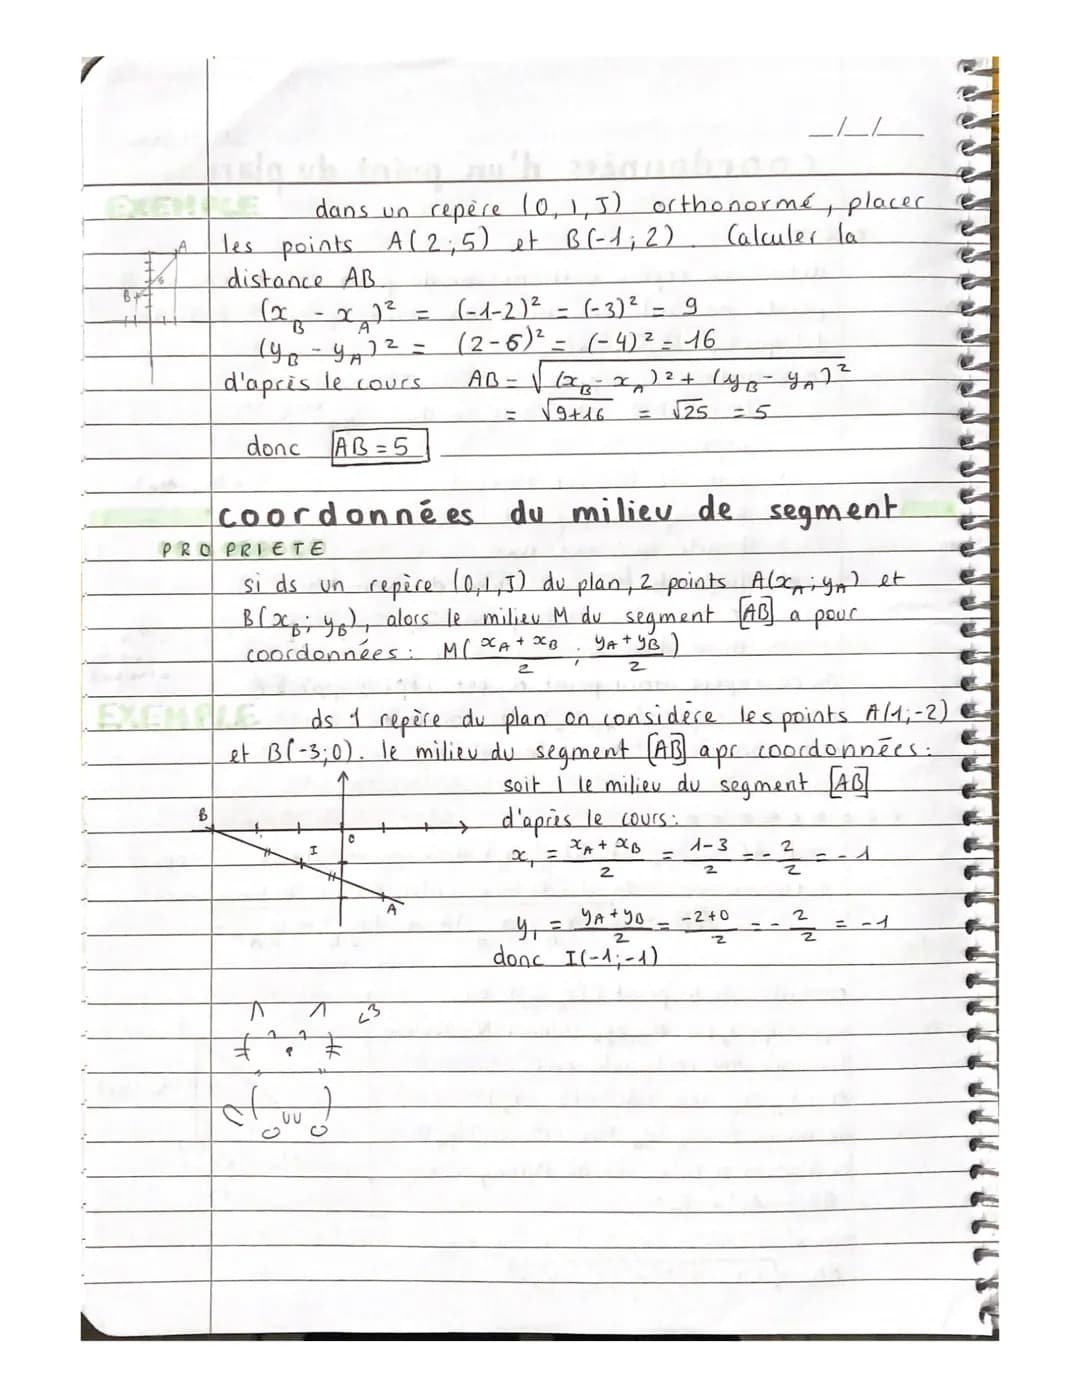 _/_/__
EXEMPLE dans un repère (O, I, J) orthonormé, placer
les points A(2;5) et B(-1;2). Calculer la
distance AB.
(x_B - x_A)² = (-1-2)² = (-3)² = 9
(y_B - y_A)² = (2-6)² = (-4)² = 16
d'après le cours AB = √(x_B - x_A)² + (y_B - y_A)²
= √9+16 = √25 = 5
donc AB = 5
A
B
coordonnées du milieu de segment
PROPRIETE
si ds un repère (O,I,J) du plan, 2 points A(x_A; y_A) et
B(x_B; y_B), alors le milieu M du segment [AB] a pour
coordonnées : M( (x_A + x_B)/2 ; (y_A + y_B)/2 )
EXEMPLE ds 1 repère du plan on considère les points A(1;-2)
et B(-3;0). le milieu du segment [AB] apr coordonnées :
soit I le milieu du segment [AB]
d'après le cours :
x_I = (x_A + x_B)/2 = (1-3)/2 = -2/2 = -1
y_I = (y_A + y_B)/2 = (-2+0)/2 = -2/2 = -1
donc I(-1;-1)
B
O
I
A